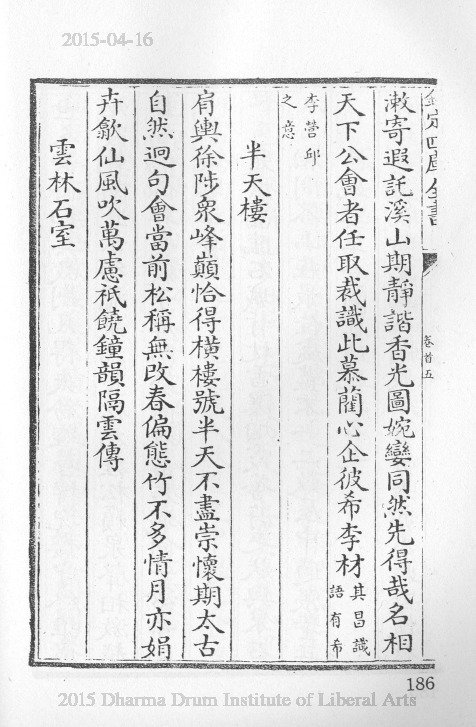 2015-04-16
欽定四庫全書
卷首五
漱寄遐託溪山期靜諧香光圖婉孌同然先得哉名相
天下公會者任取裁識此慕藺心企彼希李材其昌識語有希
李營邱之意
半天樓
肩輿徐陟衆峰巔恰得橫樓號半天不盡崇懷期太古
自然迥句會當前松稱無改春偏態竹不多情月亦娟
卉歙仙風吹萬慮祇饒鐘韻隔雲傳
雲林石室
186
2015 Dharma Drum Institute of Liberal Arts